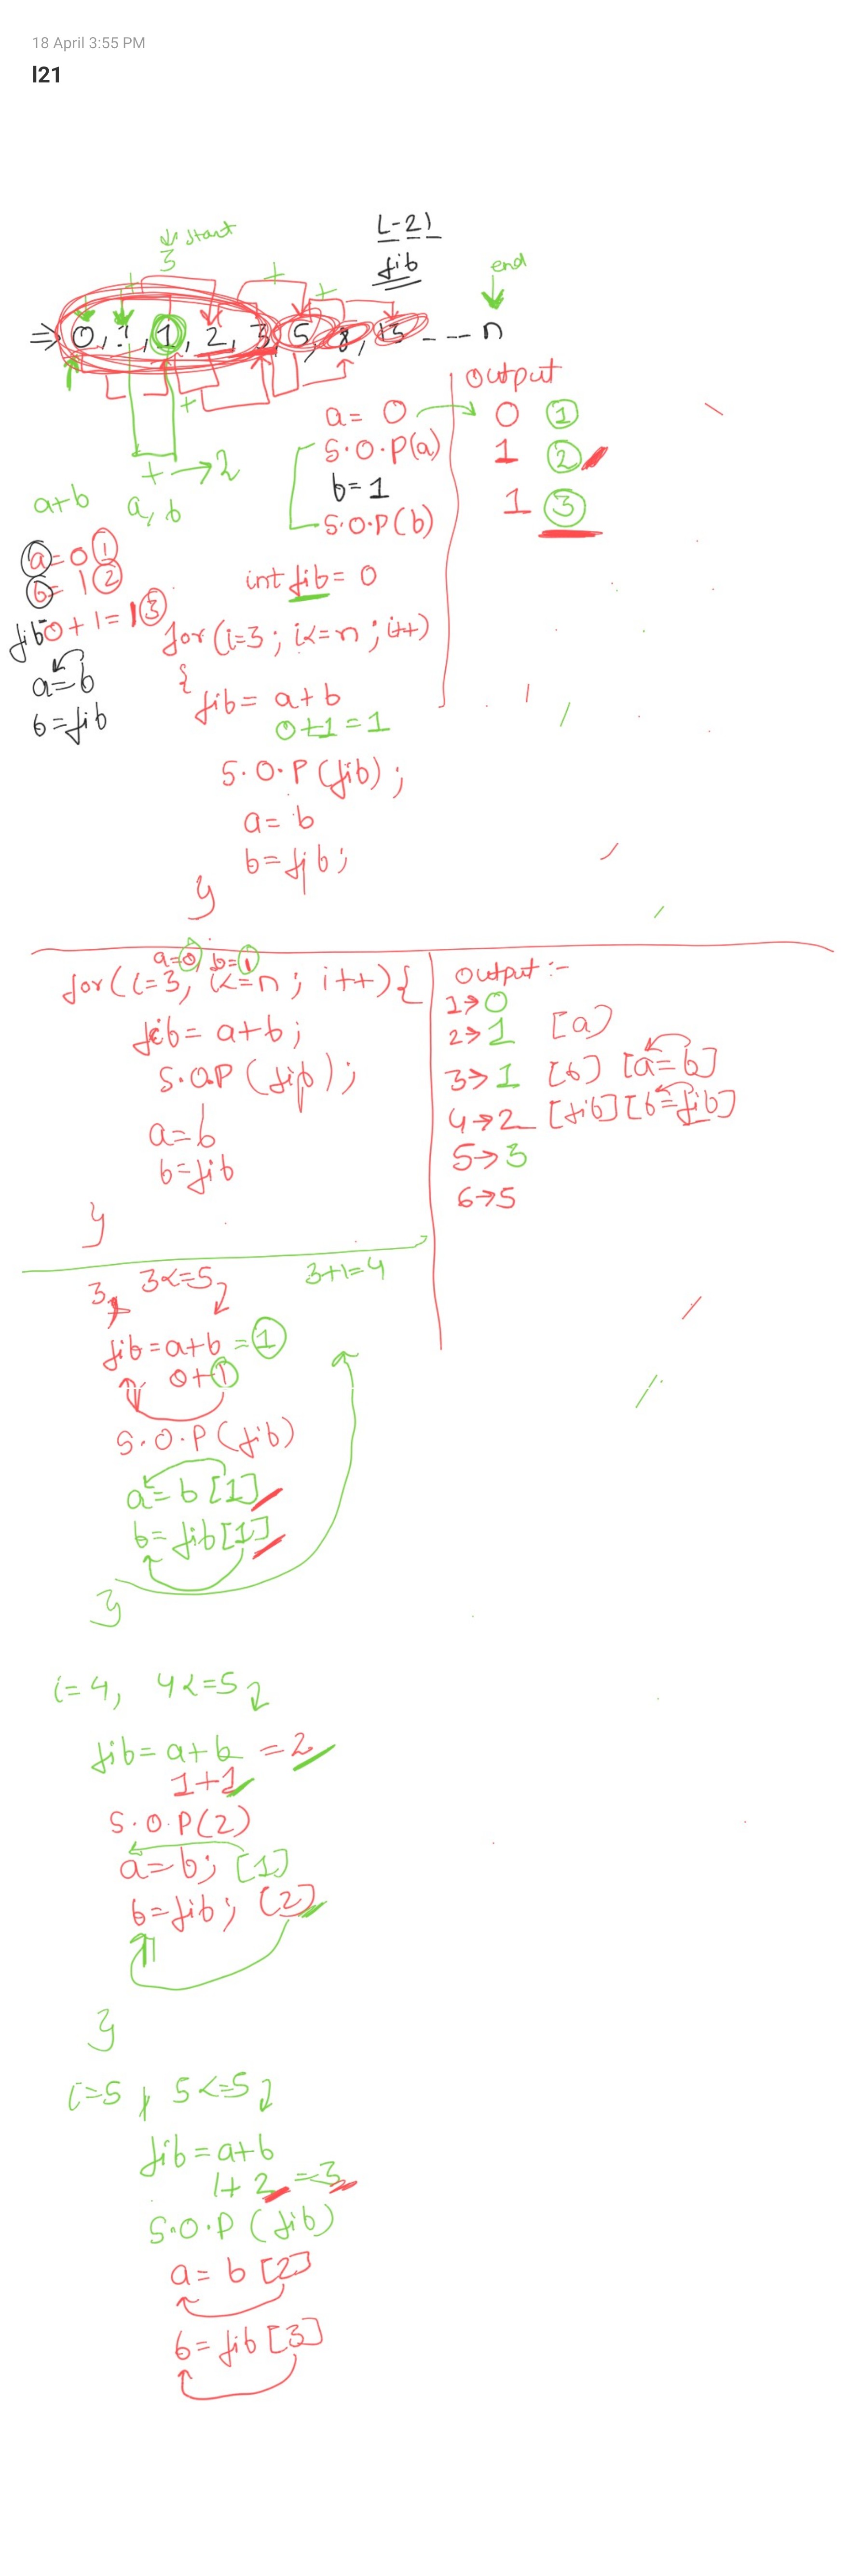 18 April 3:55 PM
l21
L-21
fib
start
3
end
+ + +
⇒ 0, 1, 1, 2, 3, 5, 8, 13 - - - n
+
+ → 2
a+b
a, b
a = 0
S.O.P(a)
b = 1
S.O.P(b)
Output
0 ①
1 ②
1 ③
a=0 ①
b=1 ②
fib 0+1=1 ③
a=b
b=fib
int fib = 0
for(i=3; i<=n; i++)
{
fib = a+b
0+1=1
S.O.P(fib);
a = b
b=fib;
}
a=0, b=1
for(i=3; i<=n; i++){
fib = a+b;
S.O.P(fib);
a=b
b=fib
}
Output :-
1→0
2→1 [a]
3→1 [b] [a=b]
4→2 [fib][b=fib]
5→3
6→5
3, 3<=5
3+1=4
fib=a+b = 1
0+1
S.O.P(fib)
a=b[1]
b=fib[1]
}
i=4, 4<=5
fib=a+b =2
1+1
S.O.P(2)
a=b; [1]
b=fib; [2]
}
i=5, 5<=5
fib=a+b
1+2=3
S.O.P(fib)
a=b[2]
b=fib[3]